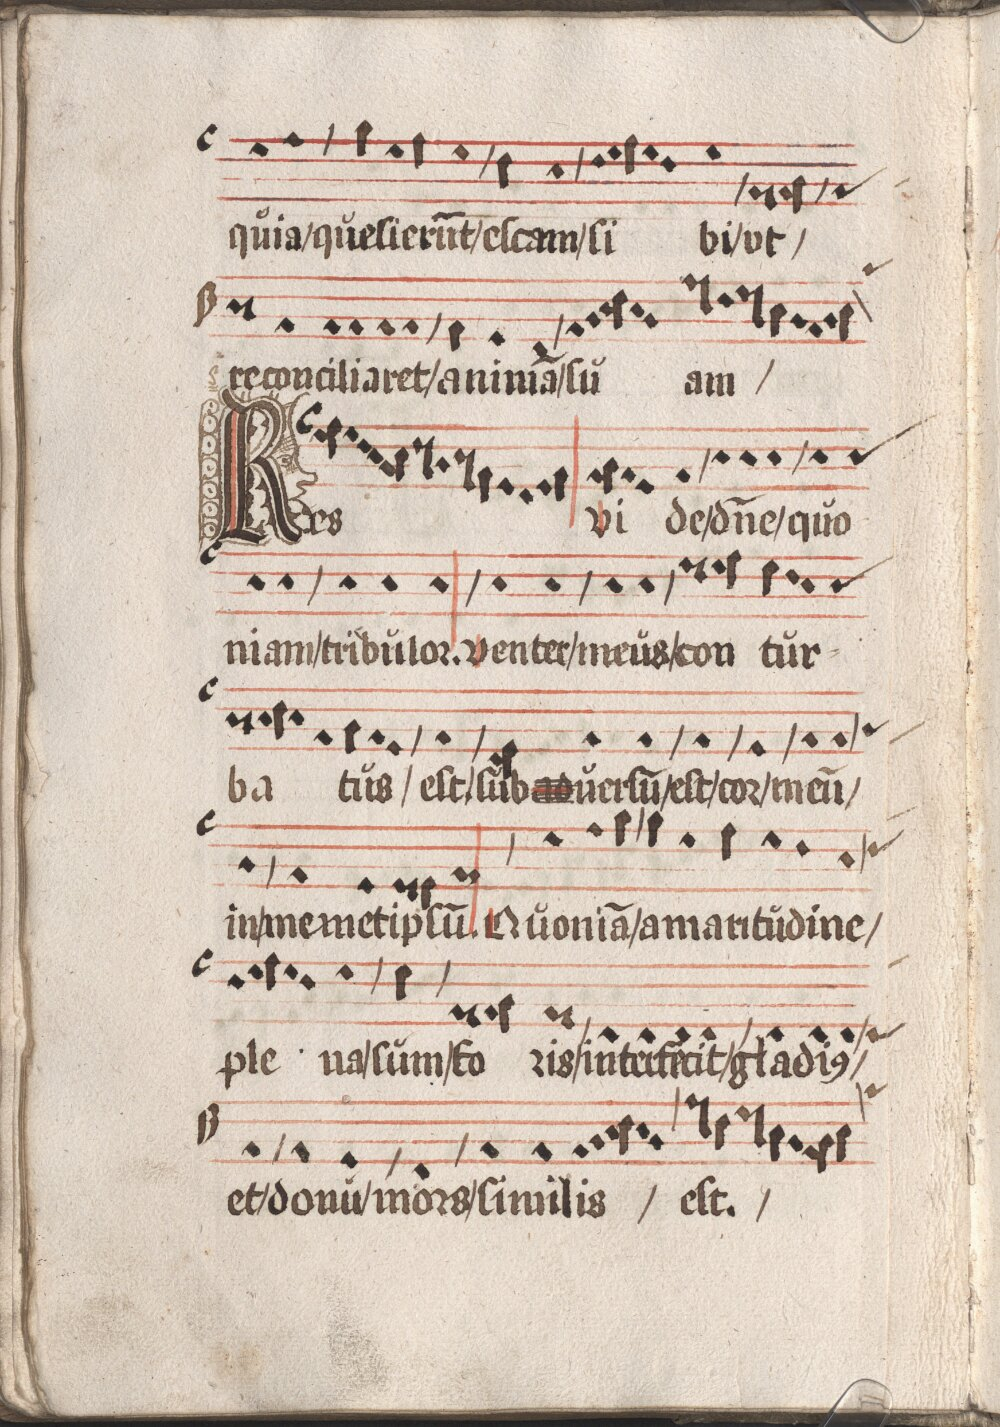 quia/quesierūt/escam/si bi/vt/
reconciliaret/animā/su am /
Res vi de/dn̄e/quo
niam/tribulor. venter/meus/con tur-
ba tus / est. sub uersū/est/cor/meū/
in/memetipsū. Quoniā/amaritudine/
ple na/sum/fo ris/interfecit/gladiꝰ/
et/donū/mors/similis / est. /